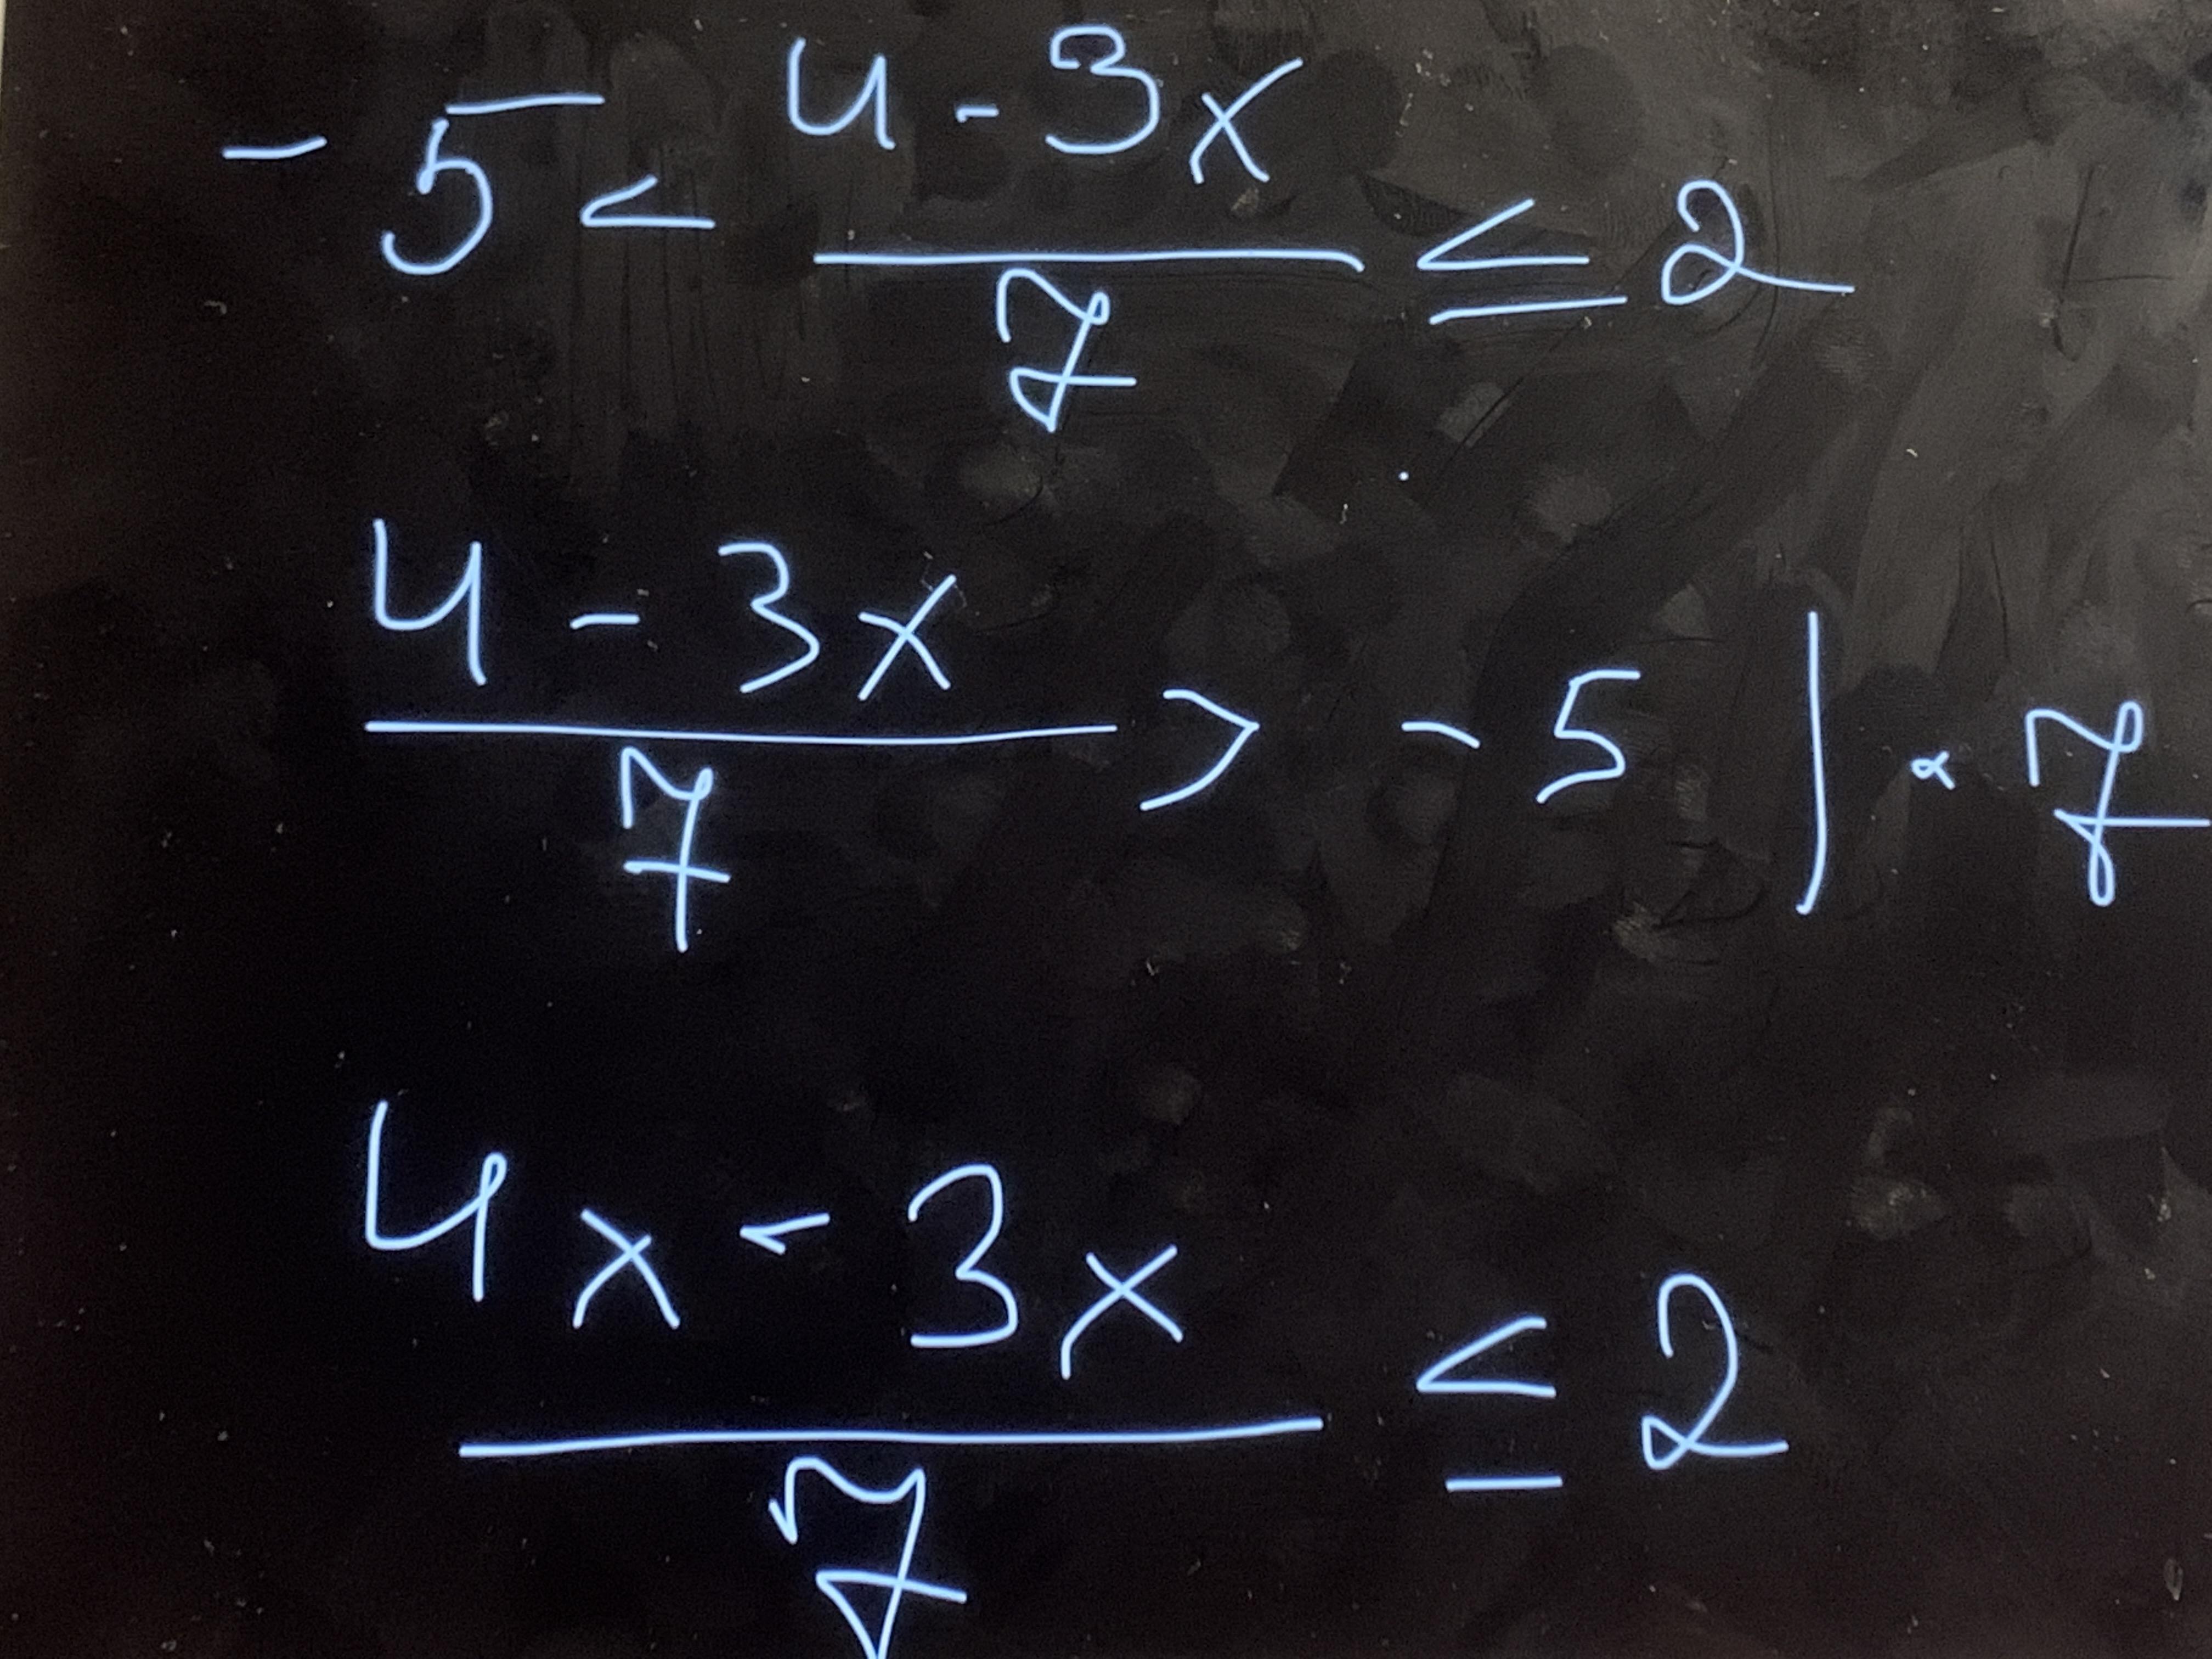 -5 < \frac{4-3x}{7} ≤ 2
\frac{4-3x}{7} > -5 | · 7
\frac{4x-3x}{7} ≤ 2